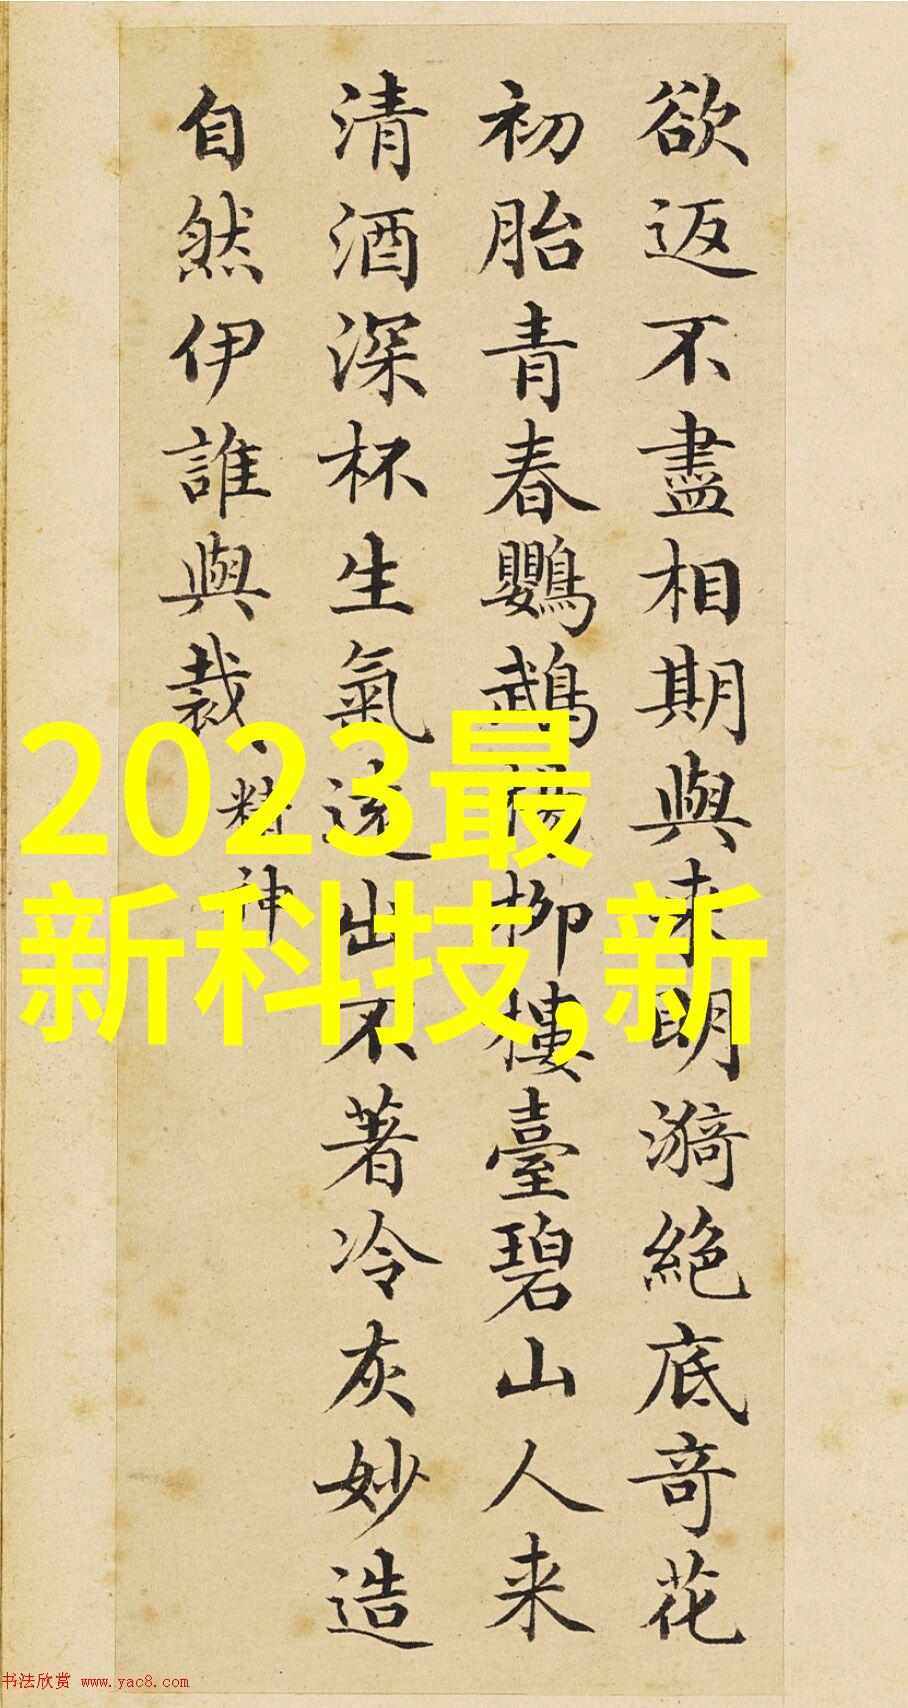 欲返不盡相期與来明漪絶底奇花
初胎青春鸚鵡楊柳樓臺碧山人来
清酒深杯生氣遠出不著冷灰妙造
自然伊誰與裁、
精神
2023最
新科技,新
书法欣赏 www.yac8.com